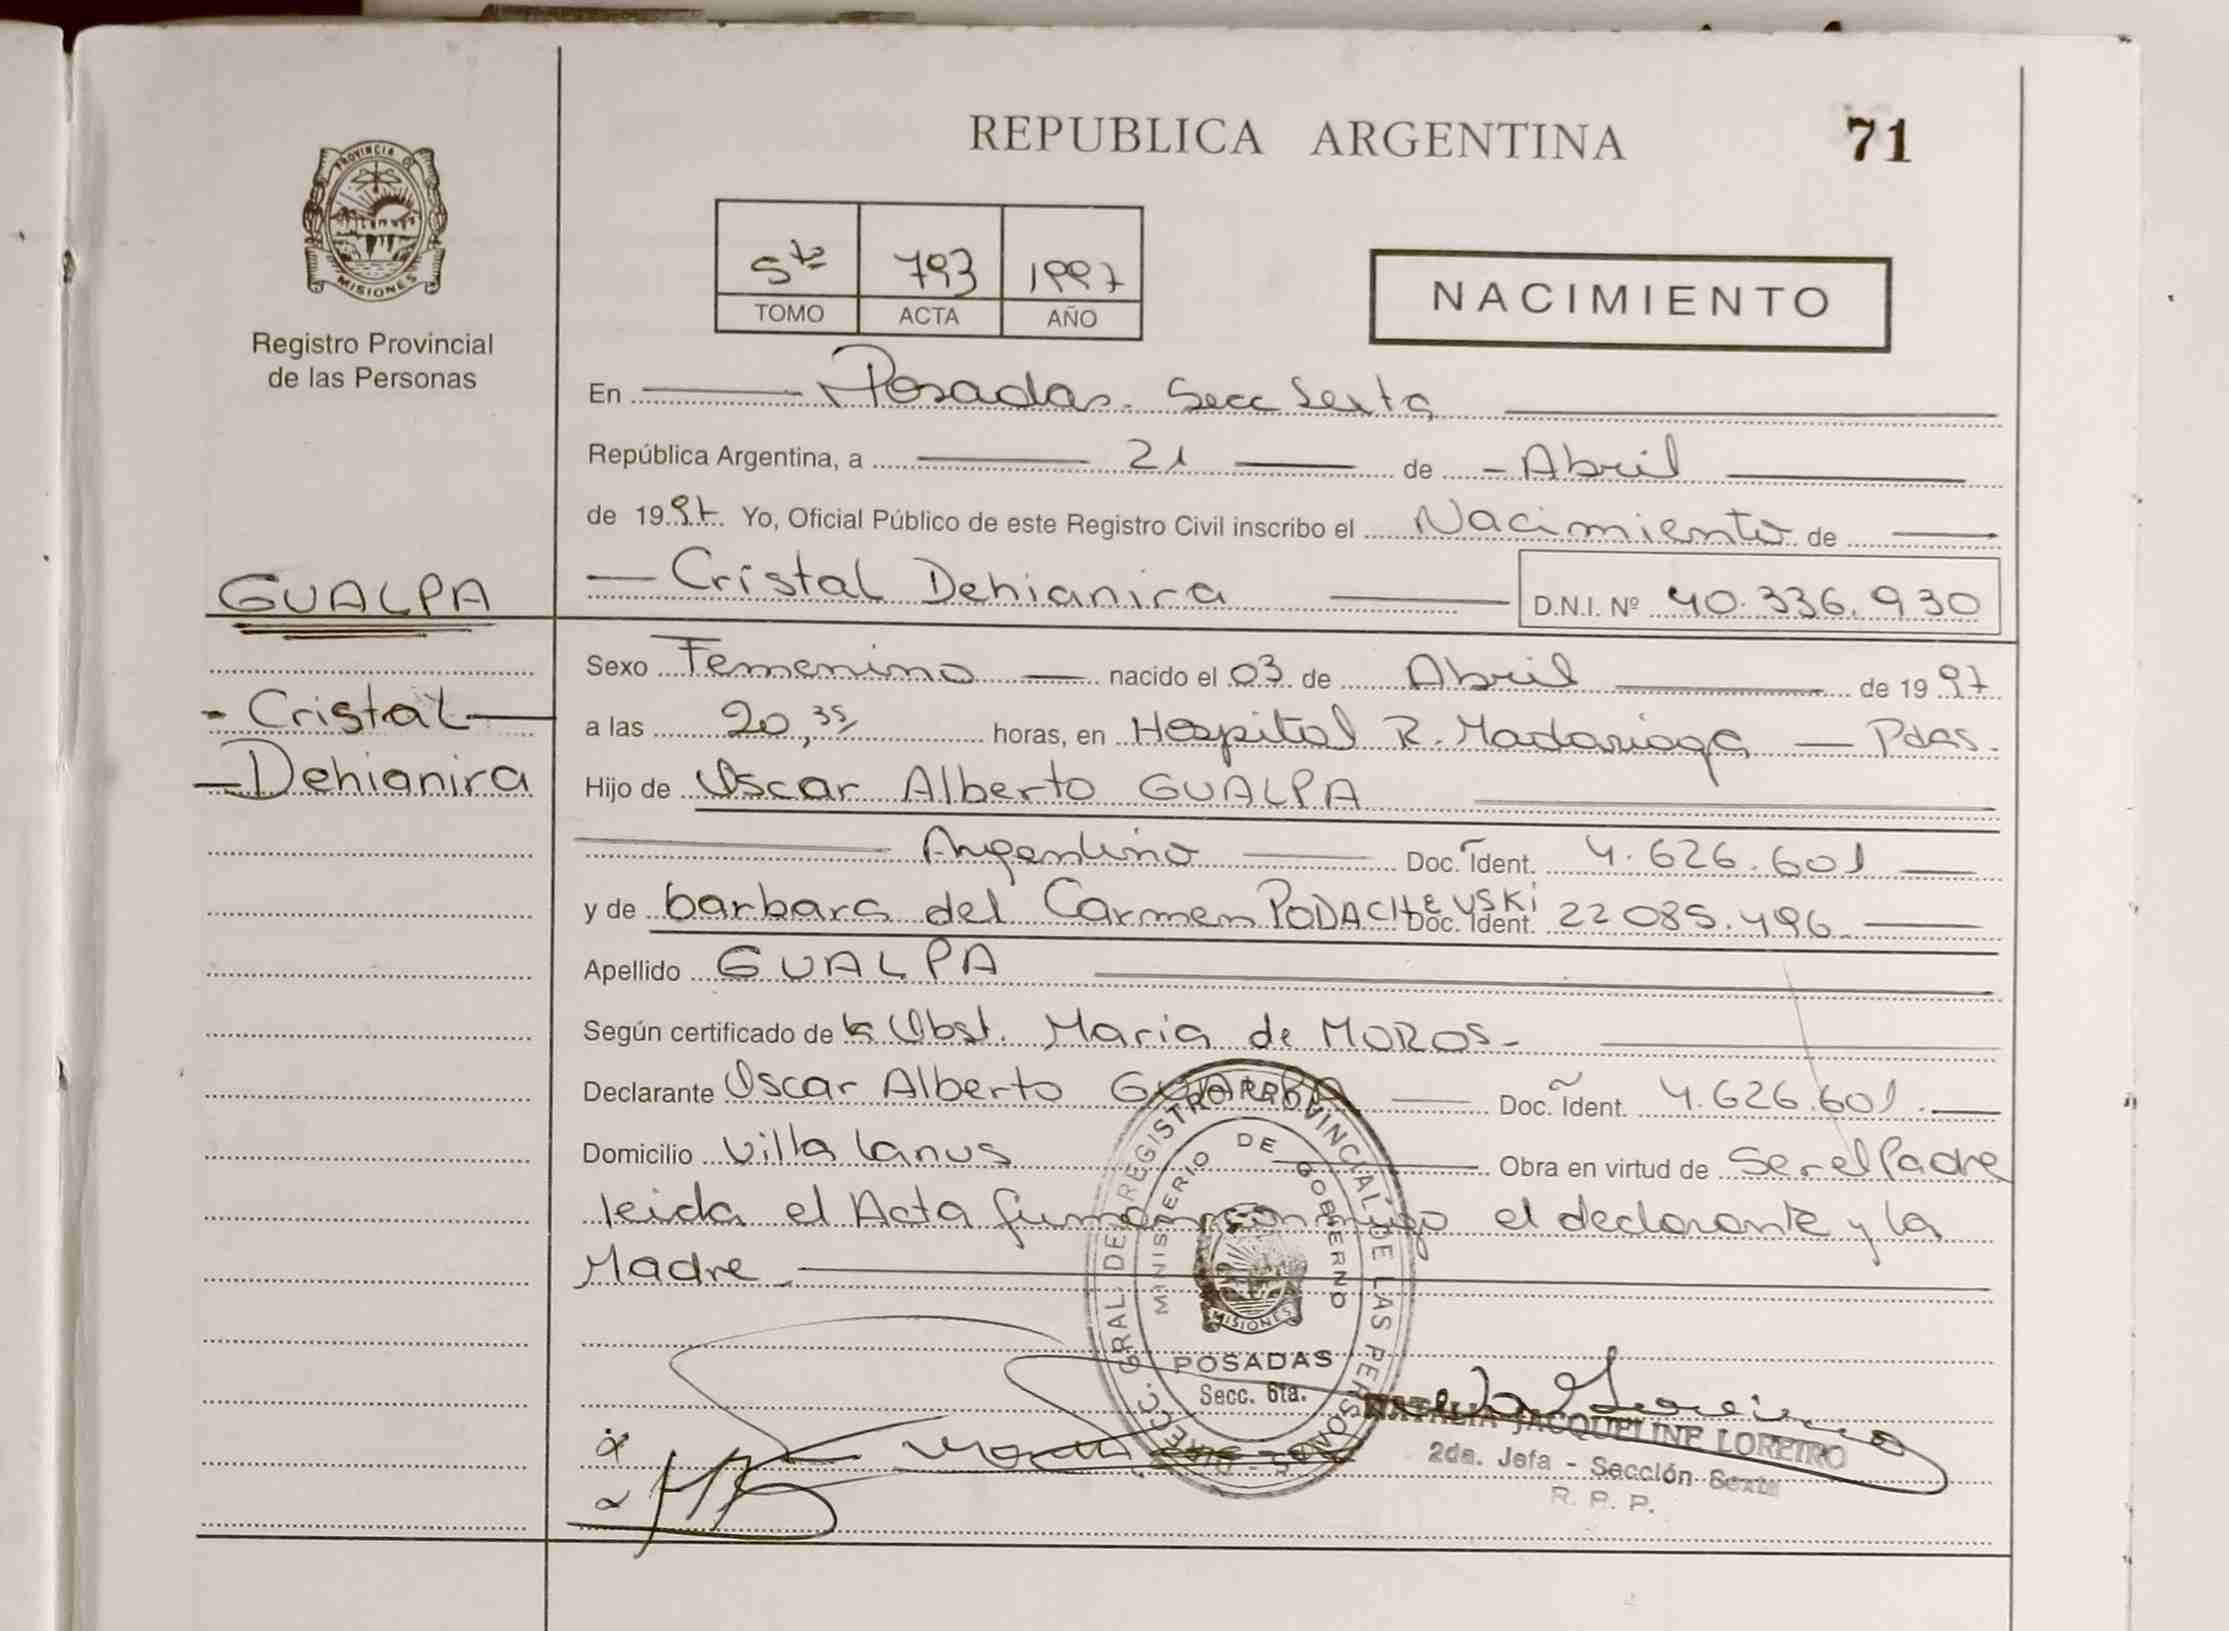 REPUBLICA ARGENTINA
71
PROVINCIA DE MISIONES
Registro Provincial
de las Personas
5to 793 1997
TOMO ACTA AÑO
NACIMIENTO
En Posadas. Secc Sexta
República Argentina, a 21 de Abril
de 1997. Yo, Oficial Público de este Registro Civil inscribo el Nacimiento de
GUALPA
Cristal Dehianira D.N.I. Nº 40.336.930
Sexo Femenino nacido el 03 de Abril de 1997
- Cristal
a las 20,35 horas, en Hospital R. Madariaga - Pdas.
- Dehianira
Hijo de Oscar Alberto GUALPA
Argentino Doc. Ident. 4.626.601
y de barbara del Carmen PODACHEVSKi Doc. Ident. 22 085.496
Apellido GUALPA
Según certificado de la Obst. Maria de MOROS-
Declarante Oscar Alberto GUALPA Doc. Ident. 4.626.601.
Domicilio Villa lanus Obra en virtud de Ser el Padre
leida el Acta firman conmigo el declarante y la
Madre.
DIRECC. GRAL. DE REGISTRO PROVINCIAL DE LAS PERSONAS
MINISTERIO DE GOBIERNO
MISIONES
POSADAS
Secc. 6ta.
NATALIA JACQUELINE LOREIRO
2da. Jefa - Sección Sexta
R. P. P.